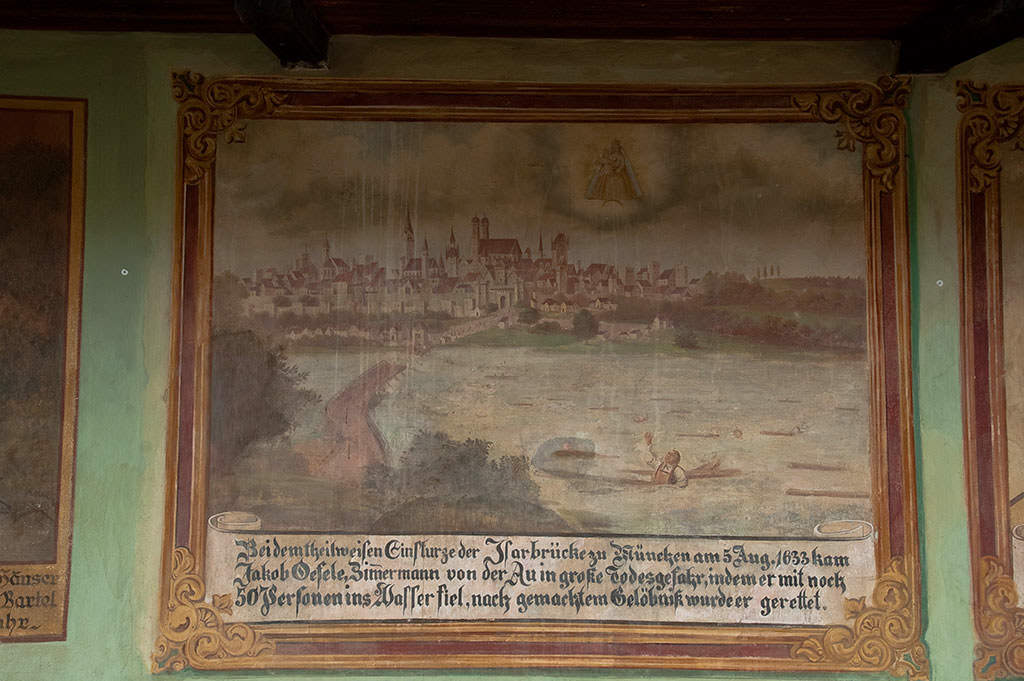 Bei dem theilweisen Einsturze der Isarbrücke zu München am 5 Aug. 1633 kam
Jakob Oesele, Zim̅ermann von der Au in große Todesgefahr, indem er mit noch
50 Personen ins Wasser fiel, nach gemachtem Gelöbniß wurde er gerettet.
Häuser
Bartol